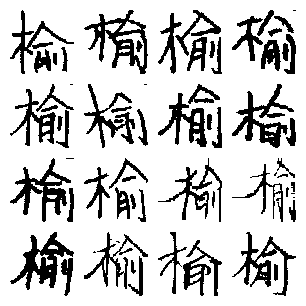 榆榆榆榆
榆榆榆榆
榆榆榆榆
榆榆榆榆